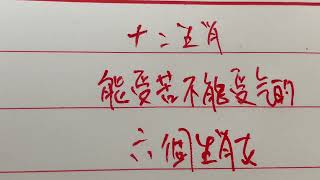 十二生肖
能受苦不能受气的
六個生肖女